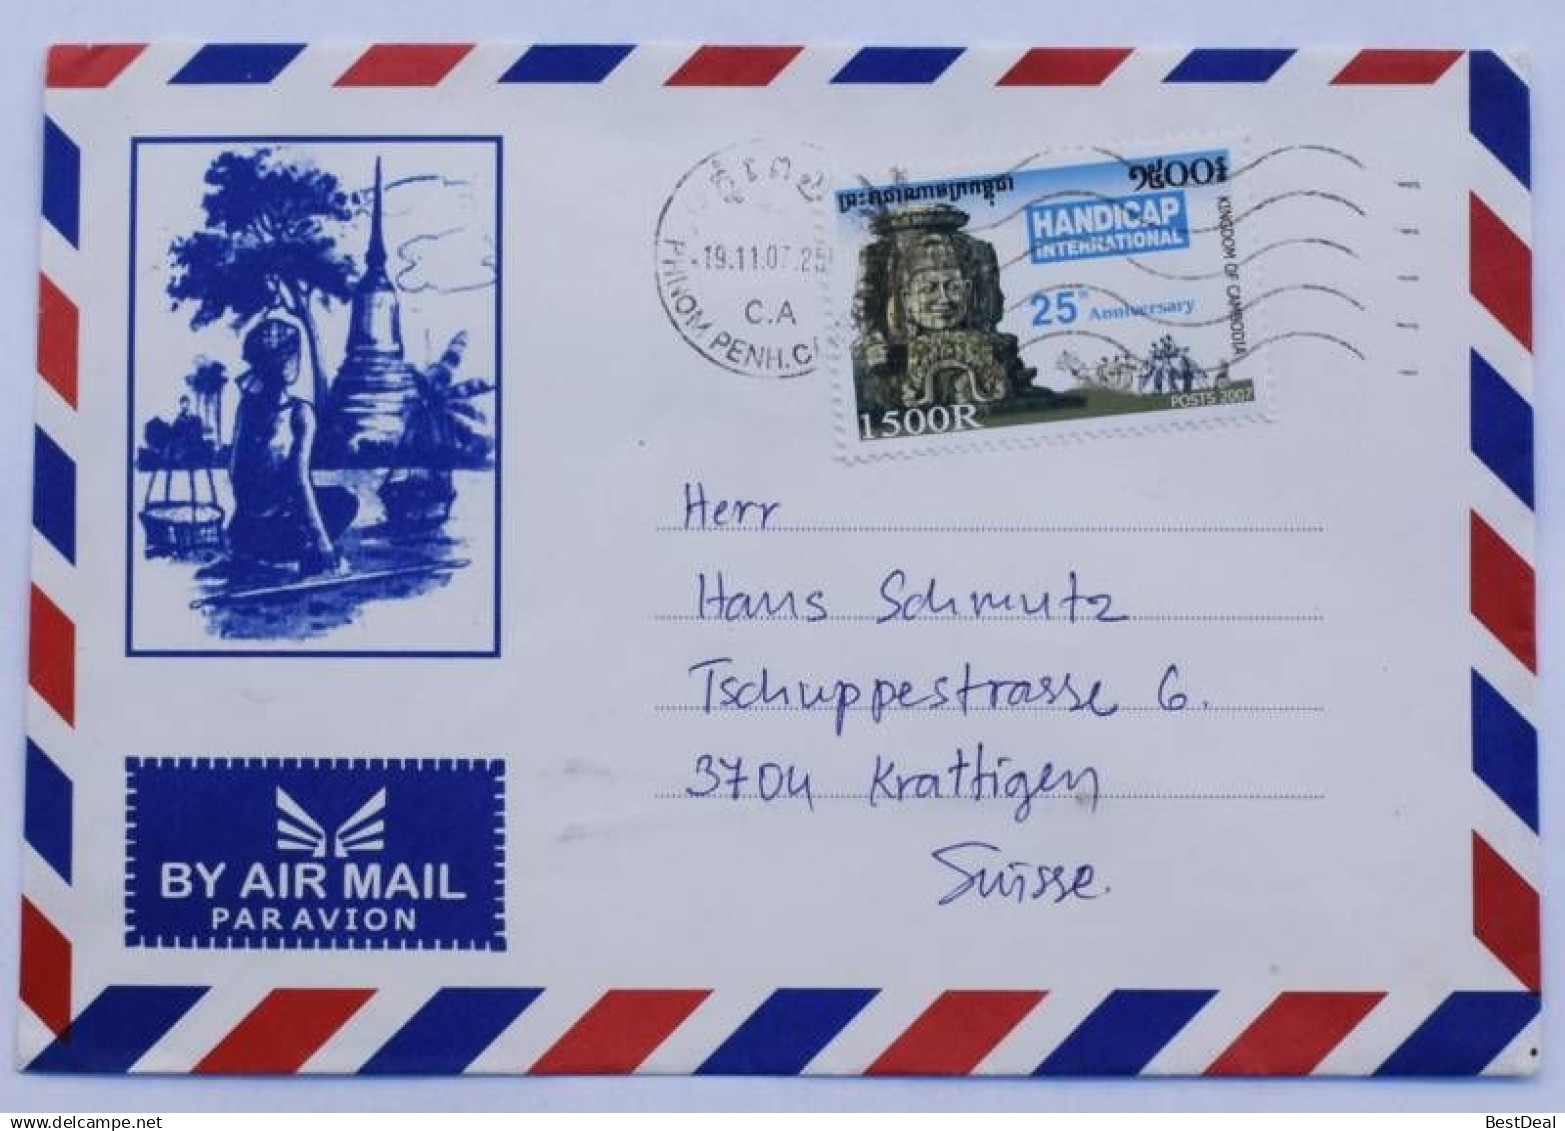 -19.11.07.25
C.A
PHNOM PENH.C
១៥០០៛
HANDICAP
INTERNATIONAL
25th Anniversary
KINGDOM OF CAMBODIA
POSTS 2007
1500R
Herr
Hans Schmutz
Tschuppestrasse 6.
3704 Krattigen
Suisse.
BY AIR MAIL
PAR AVION
BestDeal